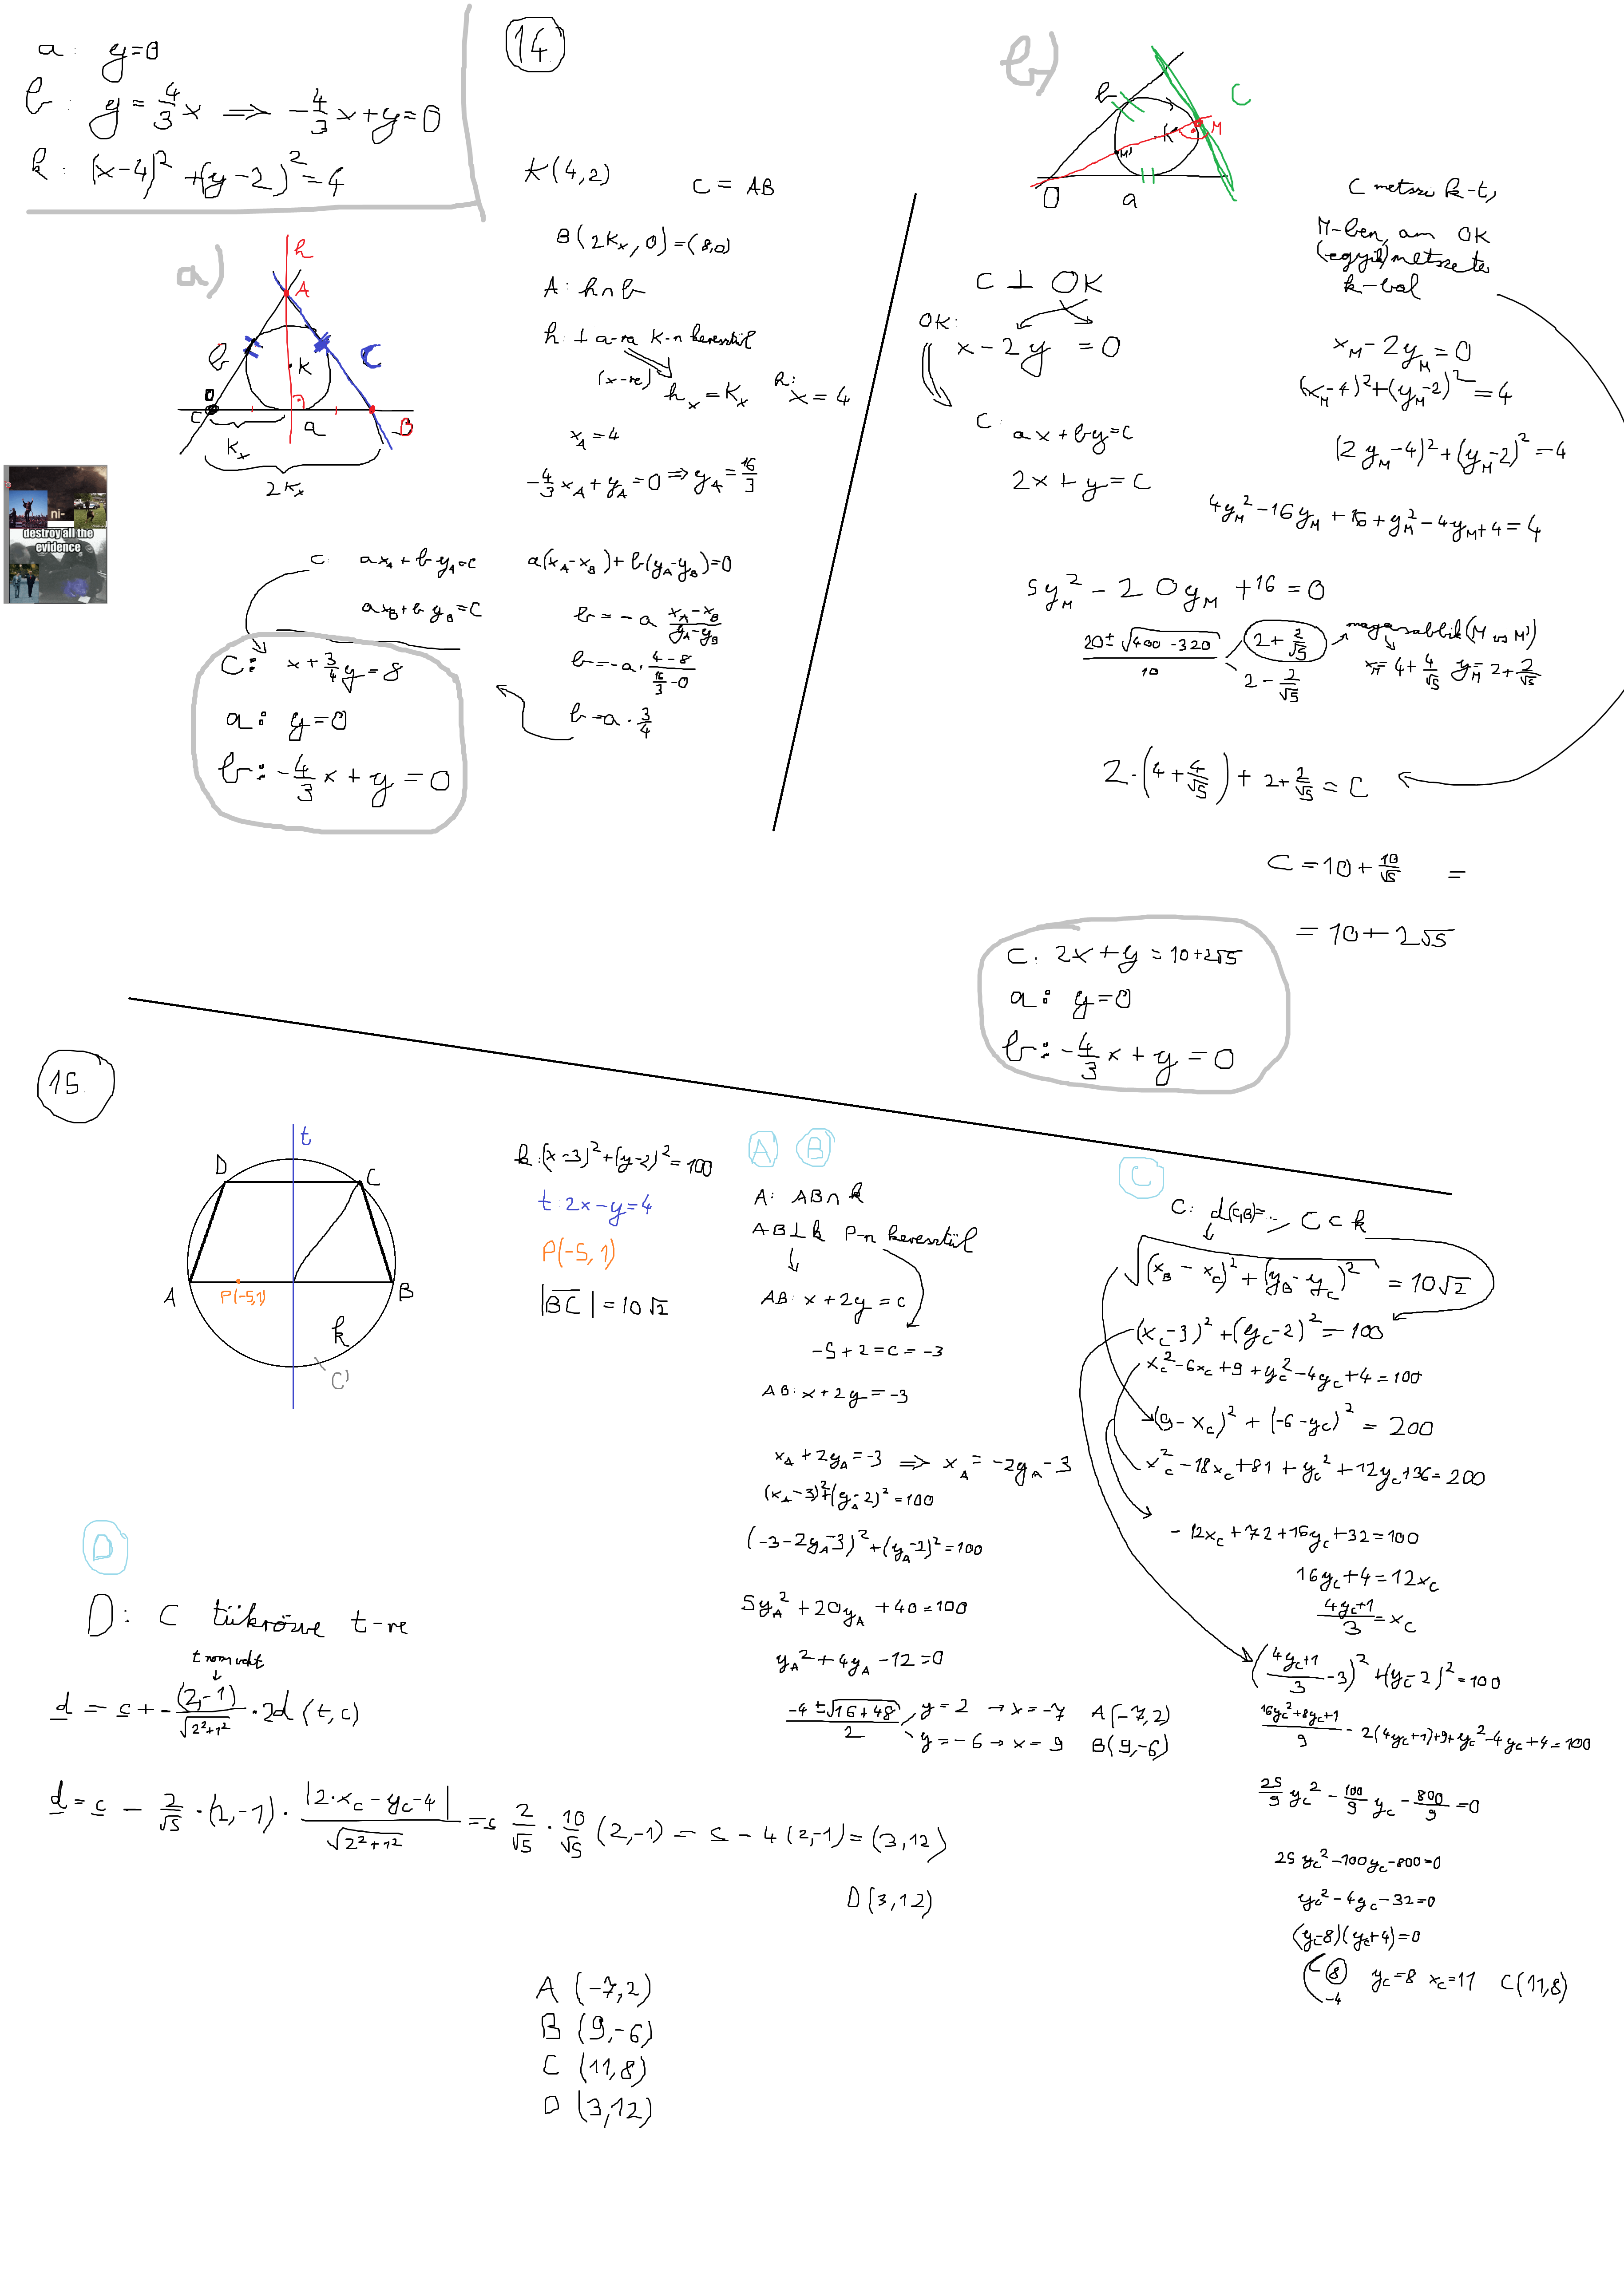 a: y=0
b: y=4/3x ⇒ -4/3x+y=0
k: (x-4)²+(y-2)²=4
14.
a)
h
A
b
K
C
O
C
a
B
Kx
2Kx
ni-
destroy all the
evidence
K(4,2)
C=AB
B(2Kx,0)=(8,0)
A: h∩b
h: ⊥ a-ra K-n keresztül
(x-re)
hx=Kx
h: x=4
xA=4
-4/3xA+yA=0⇒yA=16/3
C: axA+byA=C
axB+byB=C
a(xA-xB)+b(yA-yB)=0
b=-a (xA-xB)/(yA-yB)
b=-a·(4-8)/(16/3-0)
b=a·3/4
C: x+3/4y=8
a: y=0
b: -4/3x+y=0
b)
b
C
K
M
M'
O
a
C metszi k-t,
M-ben, am OK
(egyik) metszete
k-val
C ⊥ OK
OK:
x-2y=0
C: ax+by=C
2x+y=C
xM-2yM=0
(xM-4)²+(yM-2)²=4
(2yM-4)²+(yM-2)²=4
4yM²-16yM+16+yM²-4yM+4=4
5yM²-20yM+16=0
(20±√(400-320))/10
2+2/√5
2-2/√5
magasabbik (M vs M')
xM=4+4/√5 yM=2+2/√5
2·(4+4/√5)+2+2/√5=C
C=10+10/√5 =
=10+2√5
C: 2x+y=10+2√5
a: y=0
b: -4/3x+y=0
15.
t
D
C
A
P(-5,1)
B
k
C'
k:(x-3)²+(y-2)²=100
t:2x-y=4
P(-5,1)
|BC|=10√2
A B
A: AB∩k
AB⊥k P-n keresztül
AB: x+2y=c
-5+2=c=-3
AB: x+2y=-3
xA+2yA=-3 ⇒ xA=-2yA-3
(xA-3)²+(yA-2)²=100
(-3-2yA-3)²+(yA-2)²=100
5yA²+20yA+40=100
yA²+4yA-12=0
(-4±√(16+48))/2
y=2→x=-7 A(-7,2)
y=-6→x=9 B(9,-6)
C
C: d(C,B)=... C⊂k
√((xB-xC)²+(yB-yC)²)=10√2
(xC-3)²+(yC-2)²=100
xC²-6xC+9+yC²-4yC+4=100
(9-xC)²+(-6-yC)²=200
xC²-18xC+81+yC²+12yC+36=200
-12xC+72+16yC+32=100
16yC+4=12xC
(4yC+1)/3=xC
((4yC+1)/3-3)²+(yC-2)²=100
(16yC²+8yC+1)/9-2(4yC+1)+9+yC²-4yC+4=100
25/9yC²-100/9yC-800/9=0
25yC²-100yC-800=0
yC²-4yC-32=0
(yC-8)(yC+4)=0
8
-4
yC=8 xC=11 C(11,8)
D
D: C tükrözve t-re
t normvekt
d=c+-(2,-1)/√(2²+1²)·2d(t,c)
d=c-2/√5·(2,-1)·|2·xC-yC-4|/√(2²+1²)=c 2/√5·10/√5(2,-1)=c-4(2,-1)=(3,12)
D(3,12)
A (-7,2)
B (9,-6)
C (11,8)
D (3,12)